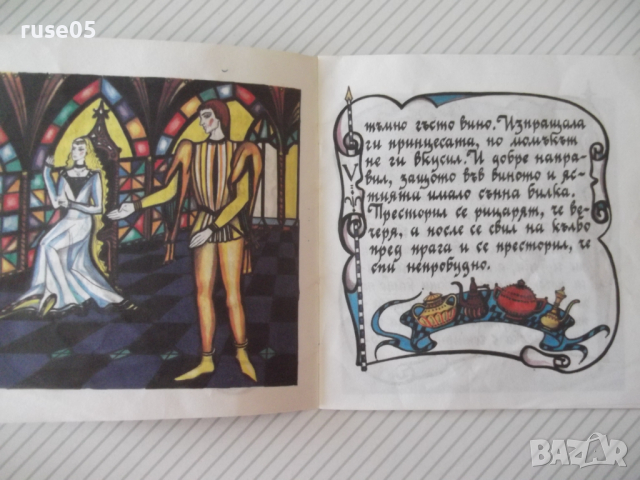 ruse05
тъмно гъсто вино. Изпращала
ги принцесата, но момъкът
не ги вкусил. И добре напра-
вил, защото във виното и яс-
тията имало сънна билка.
Престорил се рицарят, че ве-
черя, а после се свил на кълбо
пред прага и се престорил, че
спи непробудно.
BAZAR
bazar.bg